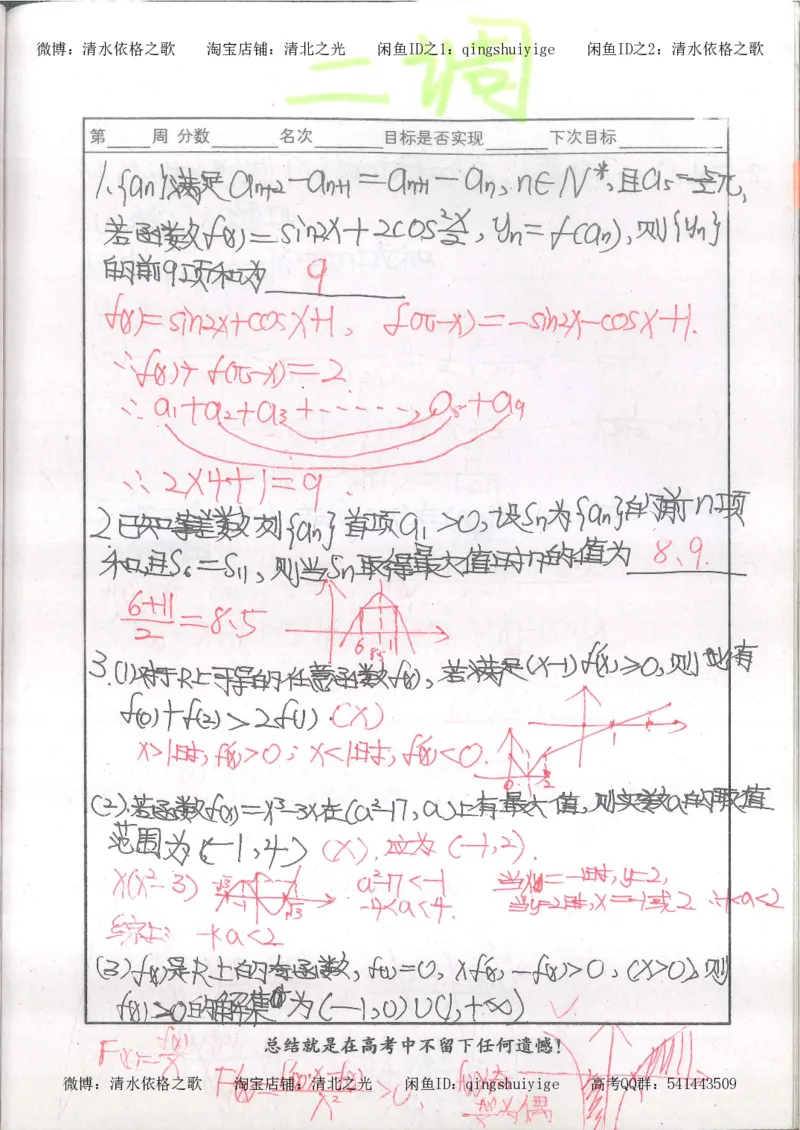 微博：清水依格之歌 淘宝店铺：清北之光 闲鱼ID之1：qingshuiyige 闲鱼ID之2：清水依格之歌
二调
第____周 分数______名次______目标是否实现______下次目标__________
1.{an}满足an+2-an+1=an+1-an,n∈N*,且a5=½π,
若函数f(x)=sin2x+2cos²x/2,yn=f(an),则{yn}
的前9项和为 9
f(x)=sin2x+cosx+1, f(π-x)=-sin2x-cosx+1.
∴f(x)+f(π-x)=2
∴a1+a2+a3+------,a8+a9
∴2×4+1=9.
2.已知等差数列{an}首项a1>0,设Sn为{an}的前n项
和,且S6=S11,则当Sn取得最大值时n的值为 8、9.
6+11/2=8.5
6 8.5 11
3.(1)对于R上可导的任意函数f(x),若满足(x-1)f'(x)≥0,则必有
f(0)+f(2)>2f(1).(×)
x>1时,f'(x)>0;x<1时,f'(x)<0.
1
0 1 2
(2).若函数f(x)=x³-3x在(a²-17,a)上有最大值,则实数a的取值
范围为(-1,4) (×).应为(-1,2).
x(x²-3) a²-17<-1 当x=-1时,y=2,
-4<a<4. 当y=2时,x=-1或2 ∴-1<a<2
综上：-1<a<2
(3)f(x)是R上的奇函数,f(1)=0,xf'(x)-f(x)>0,(x>0),则
f(x)>0的解集为(-1,0)∪(1,+∞) ✓
总结就是在高考中不留下任何遗憾！
F(x)=f(x)/x
微博：清水依格之歌 淘宝店铺：清北之光 闲鱼ID：qingshuiyige 高考QQ群：541443509
>0,
为偶